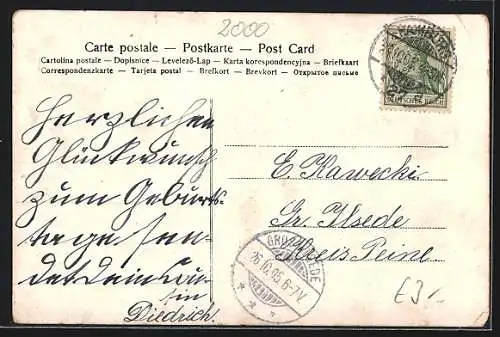 2000
Carte postale — Postkarte — Post Card
Cartolina postale — Dopisnice — Levelező-Lap — Karta korespondencyjna — Briefkaart
Correspondenzkarte — Tarjeta postal — Brefkort — Brevkort — Открытое письмо
HAMBURG
DEUTSCHES REICH
Herzlichen
Glückwunsch
zum Geburts-
tage sen-
det dein Cou-
sin
Diedrich.
E. Kawecki
Gr. Ilsede
Kreis Peine
GROSS ILSEDE
26.10.05 6-7V.
E3,-